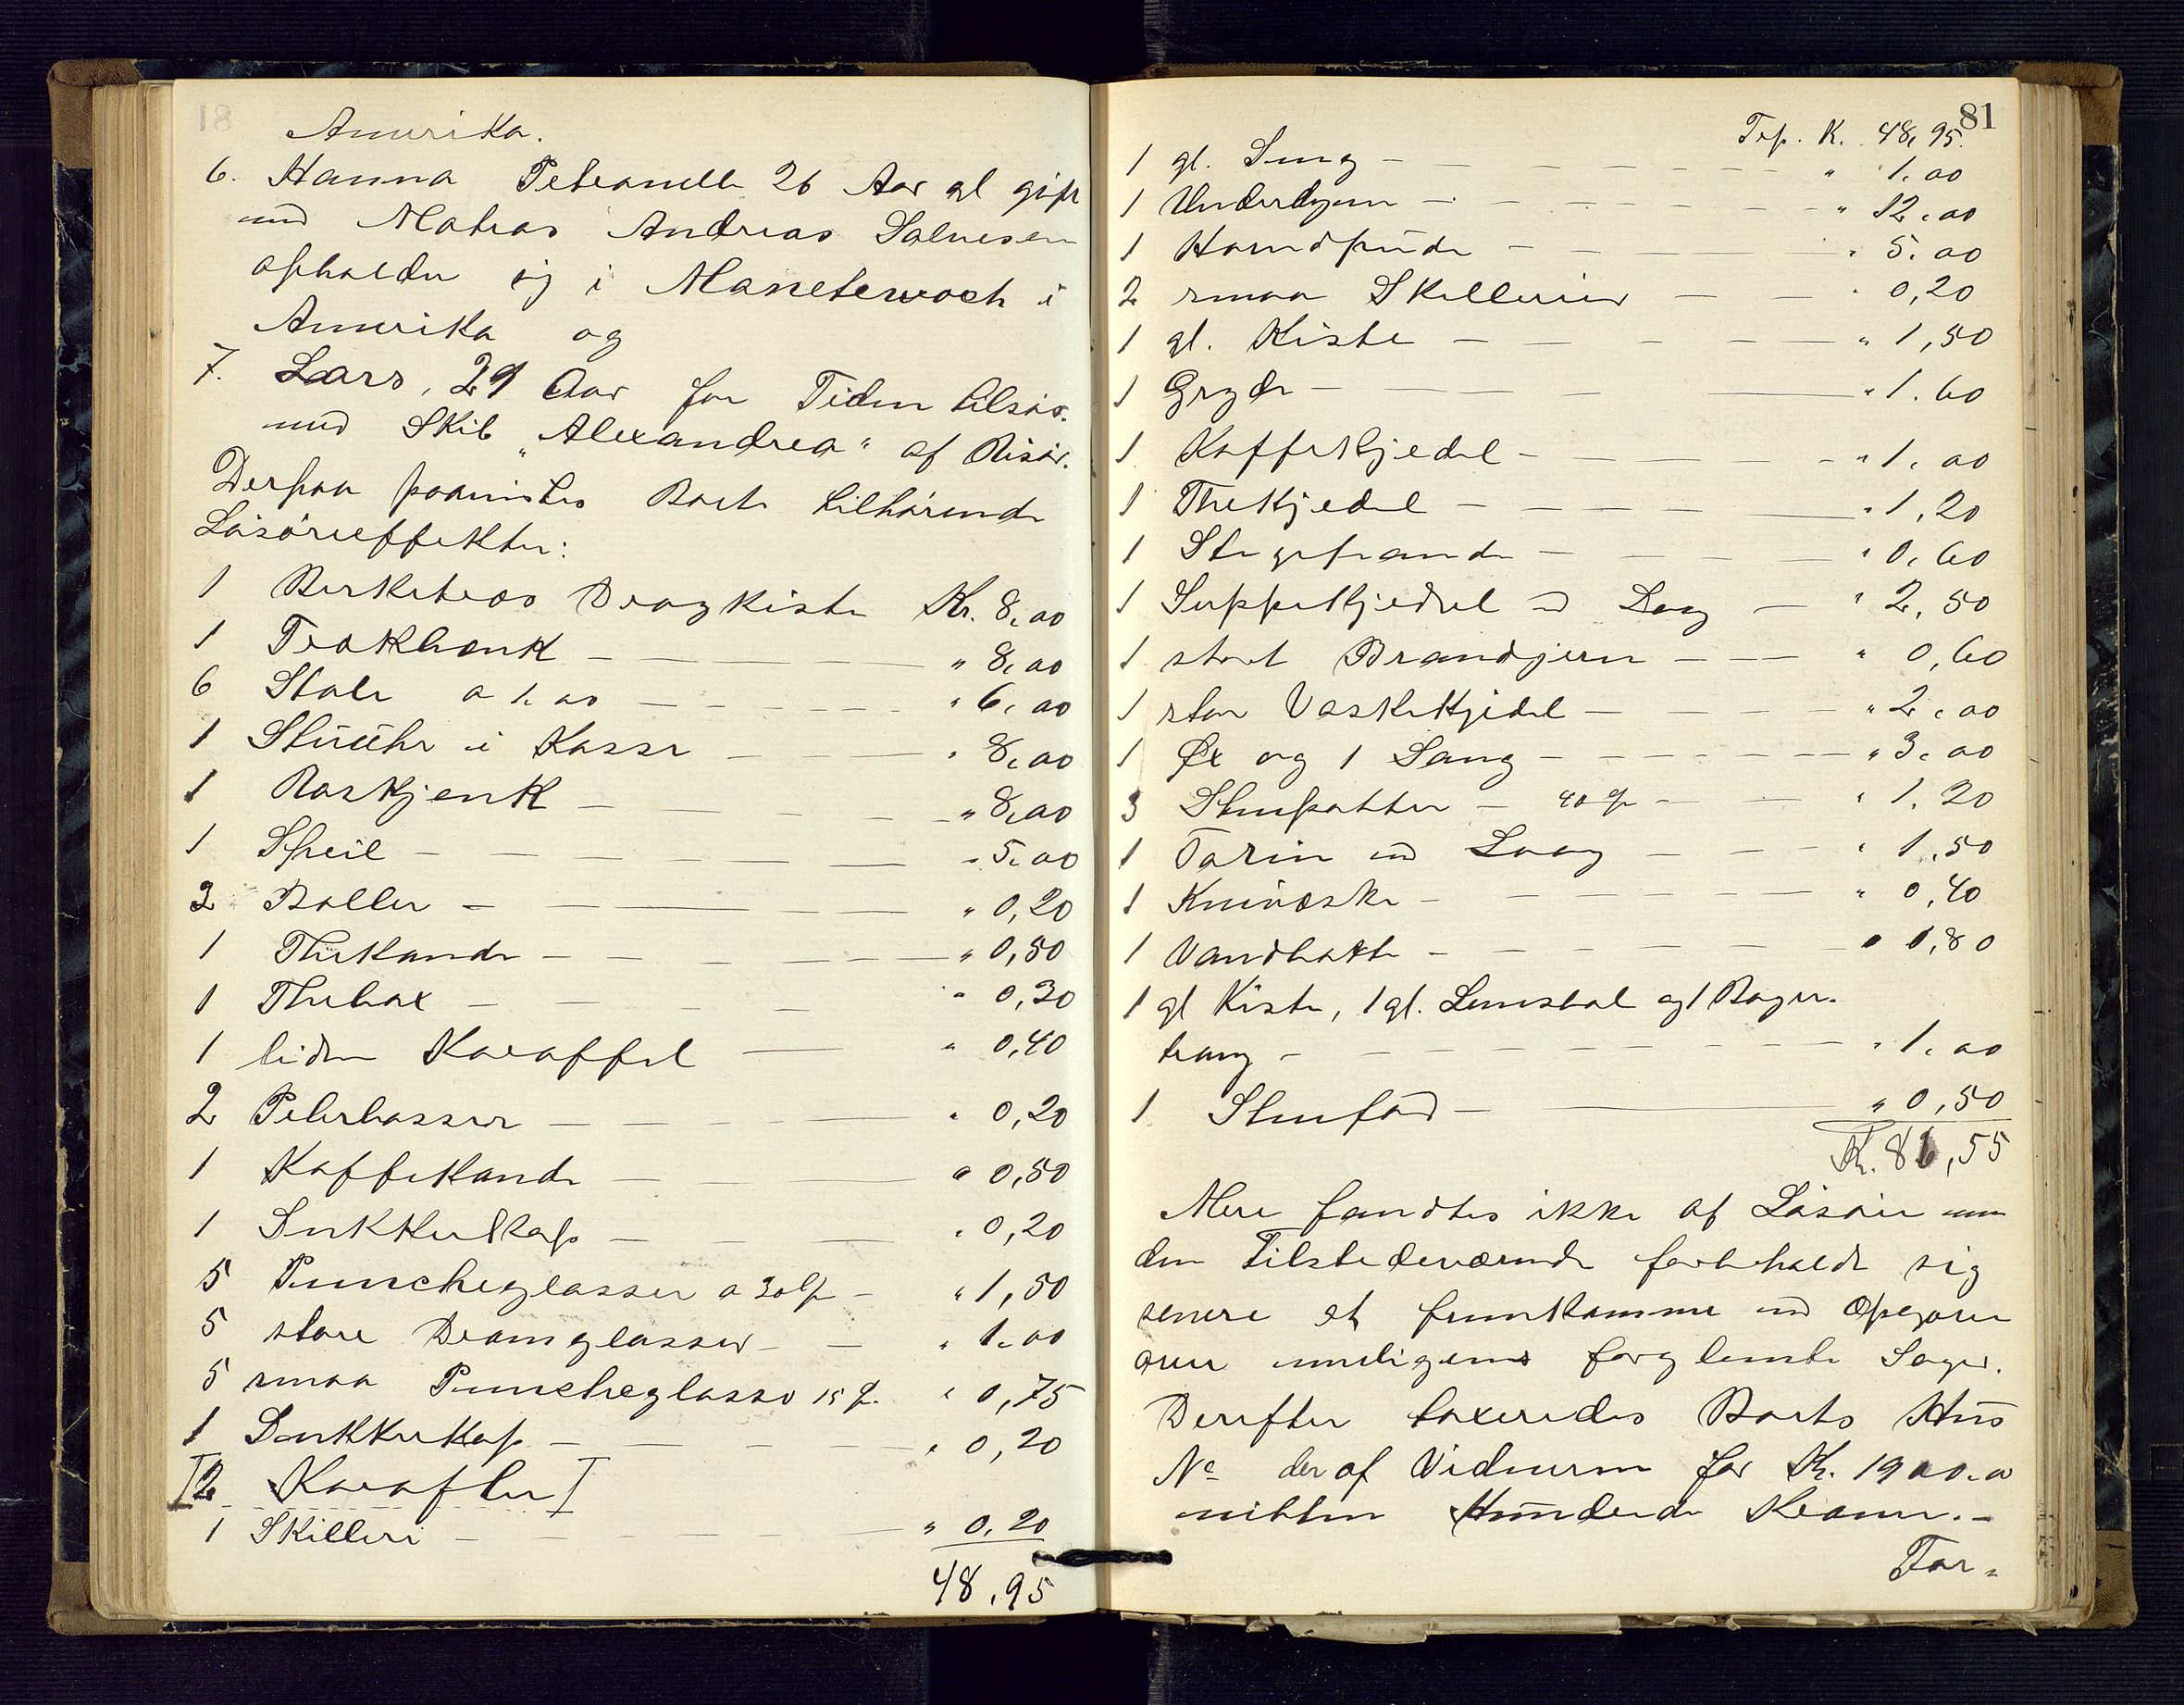 Amerika.
6. Hanna Petronelle 26 Aar gl gift
med Matias Andreas Salvesen
opholder sig i Manetewoch i
Amerika og
7. Lars, 29 Aar for Tiden tilsøs.
med Skib "Alexandrea" af Risør.
Derpaa paavistes Boets tilhørende
Løsøreeffekter:
1 Birketræs Dragkiste Kr. 8,00
1 Trækbænk " 8,00
6 Stole a 1,00 " 6,00
1 Stueuhr i Kasse " 8,00
1 Roskjenk " 8,00
1 Speil " 5,00
2 Boller " 0,20
1 Thekande " 0,50
1 Thebox " 0,30
1 liden Karaffel " 0,40
2 Peberbøsser " 0,20
1 Kaffekande " 0,50
1 Sukkerkop " 0,20
5 Puncheglasser a 30 Ø " 1,50
5 store Dramglasser " 1.00
5 smaa Puncheglasse 15 Ø. " 0,75
1 Sukkerkop " 0,20
[2 Karafler]
1 Skilleri " 0.20
48,95
81
Trp. K. 48,95.
1 gl. Seng " 1.00
1 Underdyne " 12.00
1 Hovedpude " 5.00
2 smaa Skillerier " 0,20
1 gl. Kiste " 1,50
1 Gryde " 1.60
1 Kaffekjedel " 1,00
1 Thekjedel " 1,20
1 Stegepande " 0,60
1 Suppekjedel m Laag " 2,50
1 stort Brandjern " 0,60
1 stor Vaskekjedel " 2,00
1 Øx og 1 Saug " 3,00
3 Stenpotter 40 Ø " 1.20
1 Tarin md Laag " 1.50
1 Knivæske " 0,40
1 Vandbøtte " 0,80
1 gl Kiste, 1 gl. Lænestol og 1 Bager-
traug " 1,00
1 Stenfad " 0,50
K. 86,55
Mere fandtes ikke af Løsøre men
den Tilstedeværende forbeholdt sig
senere at fremkomme md Opgaver
over muligens forglemte Sager.
Derefter taxeredes Boets Hus
No der af Vidnerne for Kr. 1900.00
nitten Hundrede Kroner. -
For-